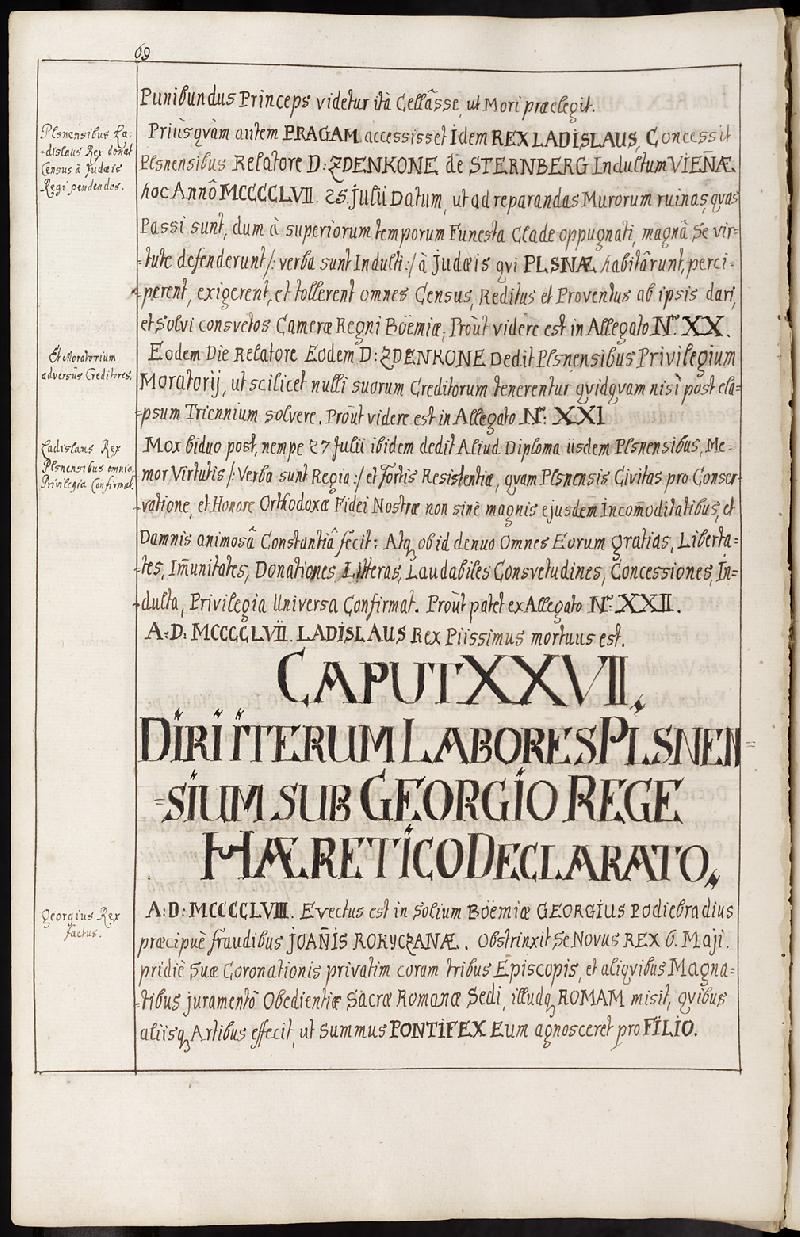 69
Punibundus Princeps videtur ità Cessâsse, ut Mori praelegit.
Plsnensibus La-
dislaus Rex donat
Census à Judæis
Regi pendendos.
Priùsqvàm autem PRAGAM accessisset Idem REX LADISLAUS, Concessit
Plsnensibus Relatore D: ZDENKONE de STERNBERG Indultum VIENÆ
hoc Annô MCCCCLVII 25 Julii Datum, ut ad reparandas Murorum ruinas, qvas
Passi sunt, dum à superiorum temporum Funesta Clade oppugnati, magnâ Se vir=
=tute defenderunt /: verba sunt Indulti :/ à Judæis qvi PLSNÆ habitârunt, perci=
=perent, exigerent, et tollerent omnes Census, Reditus et Proventus ab ipsis dari,
et Solvi consvetos Cameræ Regni Böemiæ, Proùt videre est in Allegato N.º XX.
Et Moratorium
adversùs Creditores.
Eodem Die Relatore Eodem D: ZDENKONE Dedit Plsnensibus Privilegium
Moratorij, ut scilicet nulli suorum Creditorum tenerentur qvidqvam nisi post ela=
=psum Triennium solvere. Proùt videre est in Allegato N.º XXI
Ladislaus Rex
Plsnensibus omnia
Privilegia Confirmat.
Mox biduo post, nempe 27 Julii ibidem dedit Aliud Diploma iisdem Plsnensibus, Me=
mor Virtutis /: Verba sunt Regia :/ et fortis Resistentiæ, qvam Plsnensis Civitas pro Conser=
=vatione, et Honore Orthodoxæ Fidei Nostræ non sinè magnis ejusdem Incomoditatibus, et
Damnis animosâ Constantiâ fecit: Atq; ob id denuo Omnes Eorum Gratias, Liberta=
=tes, Im̃unitates, Donationes, Litteras, Laudabiles Consvetudines, Concessiones, In=
=dulta, Privilegia Universa Confirmat. Proùt patet ex Allegato N.º XXII.
A: D: MCCCCLVII. LADISLAUS Rex Piissimus mortuus est.
CAPUT XXVII.
DIRI ITERUM LABORES PLSNEN=
=SIUM SUB GEORGIO REGE
HÆRETICO DECLARATO.
Georgius Rex
factus.
A: D: MCCCCLVIII. Evectus est in Solium Böemiæ GEORGIUS Podiebradius
præcipuè fraudibus JOAÑIS ROKYCZANÆ. Obstrinxit Se Novus REX 6. Maji.
pridiè Suæ Coronationis privatim coram tribus Episcopis, et aliqvibus Magna=
=tibus juramentô Obedientiæ Sacræ Romanæ Sedi, illudq; ROMAM misit, qvibus
aliisq; Artibus effecit, ut Summus PONTIFEX Eum agnosceret pro FILIO.